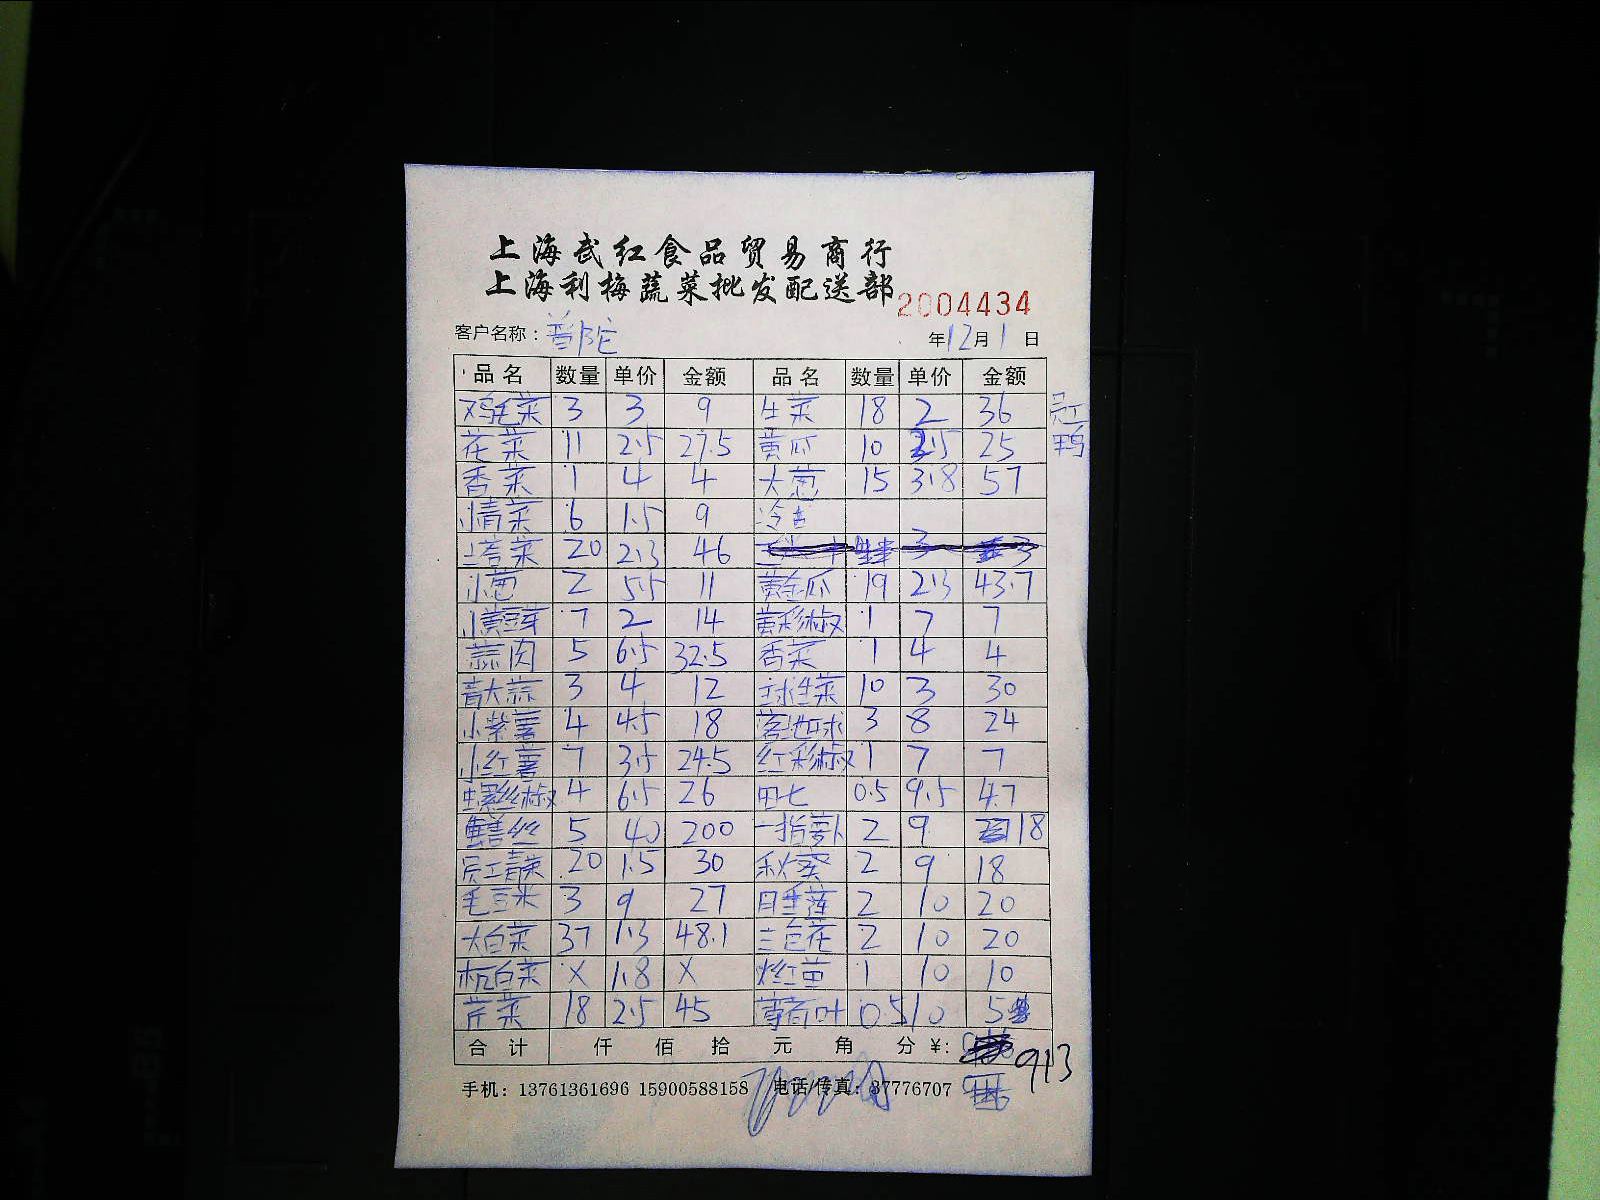 上海武红食品贸易商行
上海利梅蔬菜批发配送部 2004434
客户名称：普陀 年12月1日
品名 数量 单价 金额 品名 数量 单价 金额
鸡毛菜 3 3 9 生菜 18 2 36
花菜 11 2.5 27.5 黄瓜 10 2.5 25
香菜 1 4 4 大葱 15 3.8 57
小青菜 6 1.5 9 冷古
塔菜 20 2.3 46 3
小葱 2 5.5 11 黄金瓜 19 2.3 43.7
小黄豆芽 7 2 14 黄彩椒 1 7 7
蒜肉 5 6.5 32.5 香菜 1 4 4
青大蒜 3 4 12 球生菜 10 3 30
小紫薯 4 4.5 18 3 8 24
小红薯 7 3.5 24.5 红彩椒 1 7 7
螺丝椒 4 6.5 26 田七 0.5 9.5 4.7
鳝丝 5 40 200 一指萝卜 2 9 18
员工青菜 20 1.5 30 秋葵 2 9 18
毛豆米 3 9 27 睡莲 2 10 20
大白菜 37 1.3 48.1 三色花 2 10 20
杭白菜 X 1.8 X 红苗 1 10 10
芹菜 18 2.5 45 荷叶 0.5 10 5
合计 仟 佰 拾 元 角 分 ¥: 913
手机：13761361696 15900588158 电话/传真：37776707